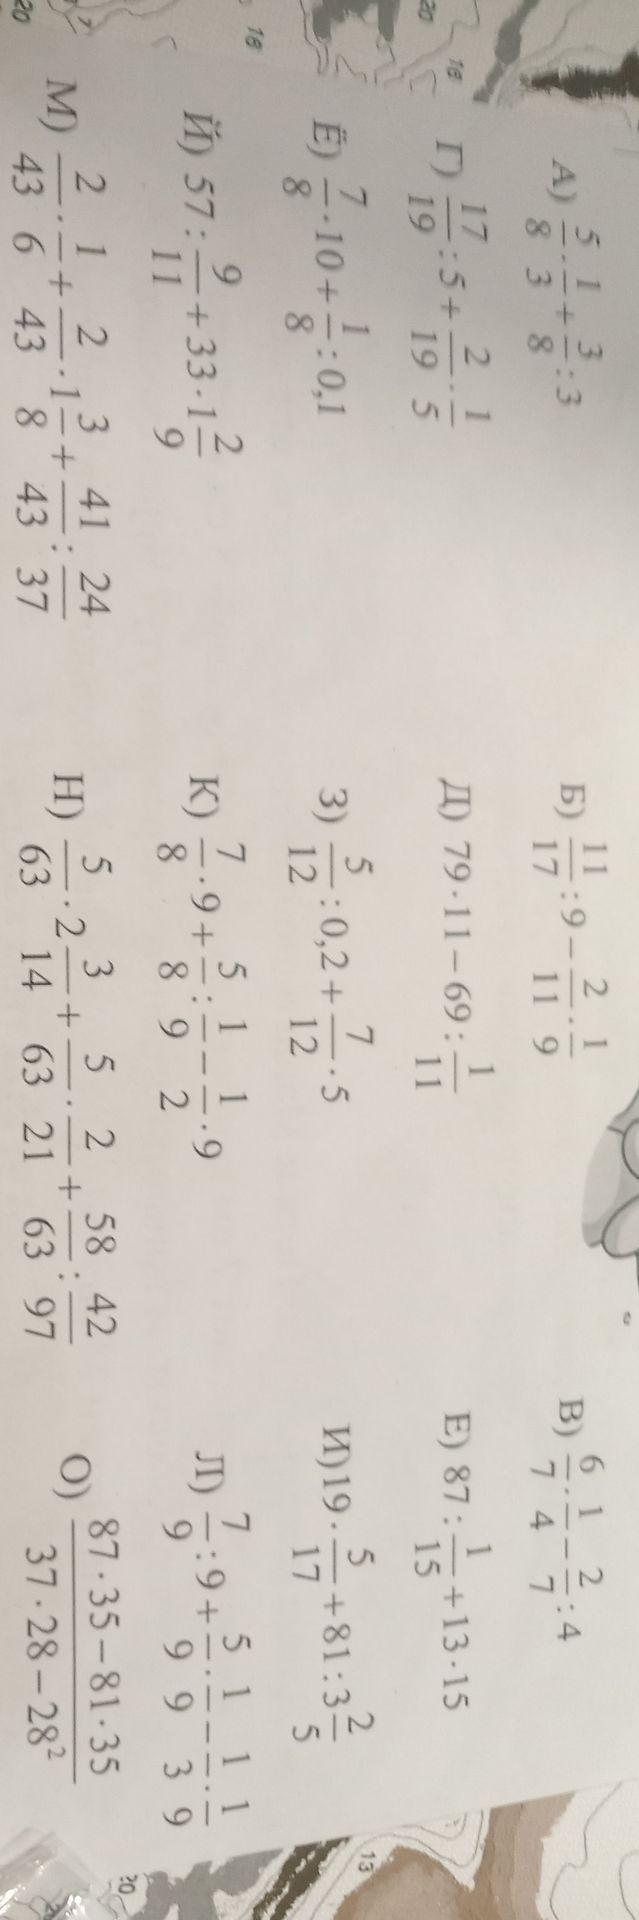 А) 5/8 · 1/3 + 3/8 : 3
Б) 11/17 : 9 − 2/11 · 1/9
В) 6/7 · 1/4 − 2/7 : 4
Г) 17/19 : 5 + 2/19 · 1/5
Д) 79 · 11 − 69 : 1/11
Е) 87 : 1/15 + 13 · 15
Ё) 7/8 · 10 + 1/8 : 0,1
З) 5/12 : 0,2 + 7/12 · 5
И) 19 · 5/17 + 81 : 3 2/5
Й) 57 : 9/11 + 33 · 1 2/9
К) 7/8 · 9 + 5/8 : 1/9 − 1/2 · 9
Л) 7/9 : 9 + 5/9 · 1/9 − 1/3 · 1/9
М) 2/43 · 1/6 + 2/43 · 1 3/8 + 41/43 : 24/37
Н) 5/63 · 2 3/14 + 5/63 · 2/21 + 58/63 : 42/97
О) (87 · 35 − 81 · 35)/(37 · 28 − 28²)
20
18
20
18
13
20